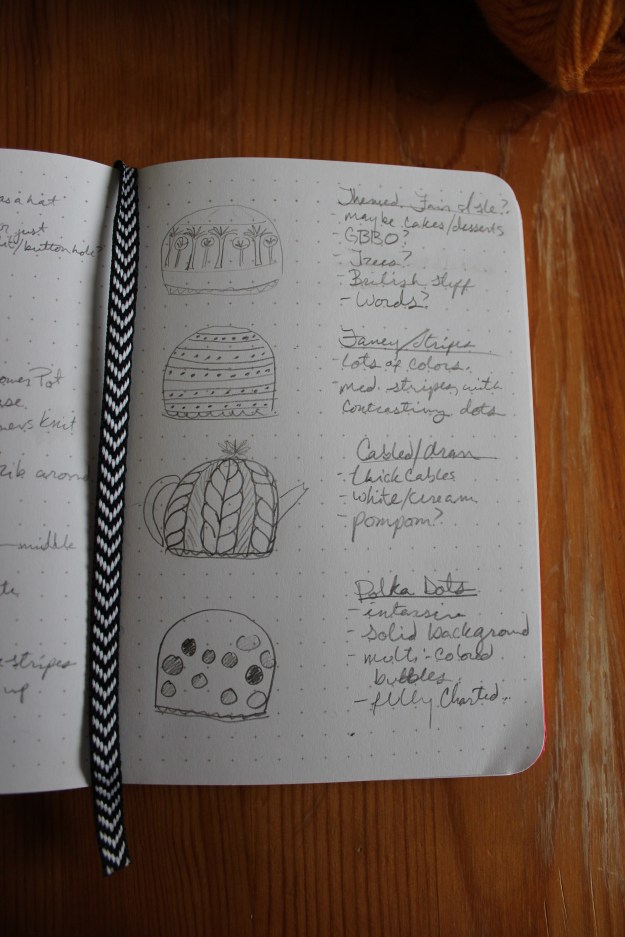 as a hat
or just
button hole?
Pot
knit
around
middle
stripes
up
Themed Fair Isle?
- maybe cakes/desserts
- GBBO?
- Trees?
- British stuff
- Words?
Fancy/Stripes
- lots of colors.
- med. stripes with
contrasting dots
Cabled/Aran
- thick cables
- white/cream
- pompom?
Polka Dots
- intarsia
- solid background
- multi-colored
bubbles
- fully charted.